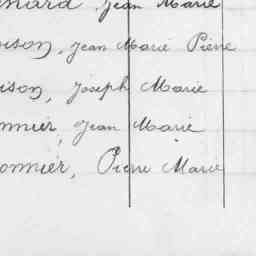 nard, Jean Marie
oison, Jean Marie Pierre
ison, Joseph Marie
nnier, Jean Marie
onnier, Pierre Marie